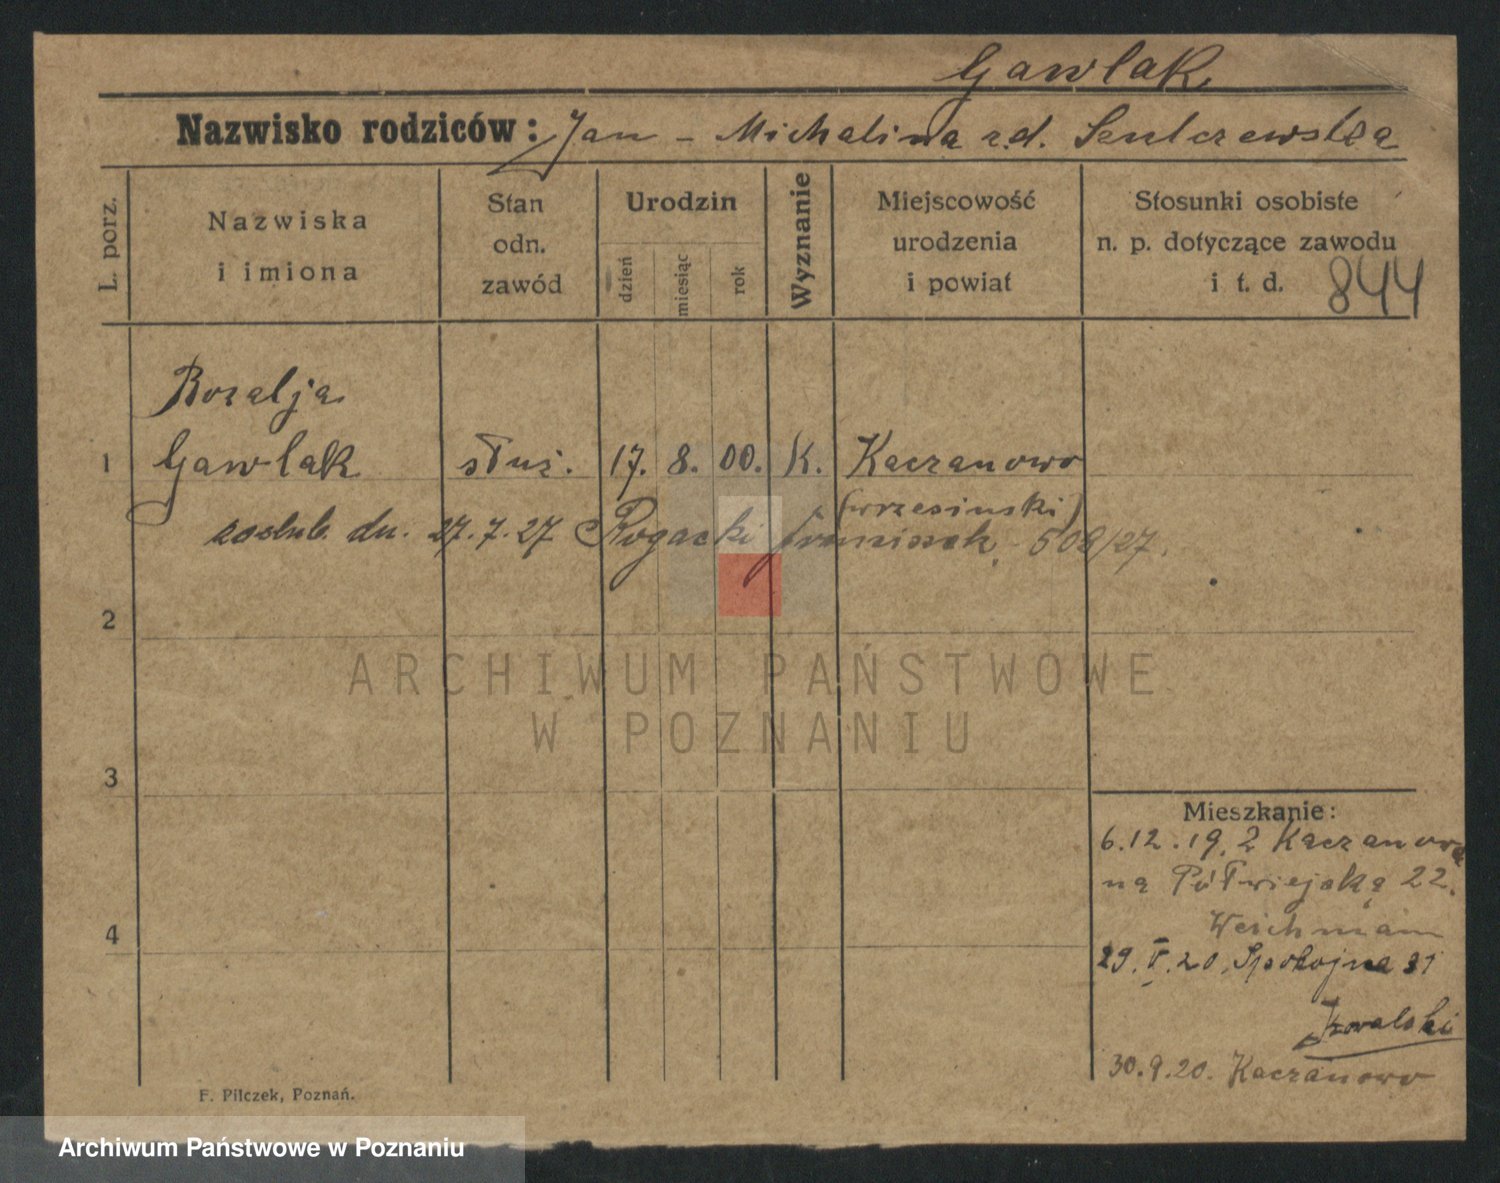 Gawlak
Nazwisko rodziców: Jan - Michalina rd. Szulczewska
L. porz.
Nazwiska
i imiona
Stan
odn.
zawód
Urodzin
dzień
miesiąc
rok
Wyznanie
Miejscowość
urodzenia
i powiat
Stosunki osobiste
n. p. dotyczące zawodu
i t. d.
844
Rozalja
1 Gawlak służ. 17. 8. 00. K. Kaczanowo
(wrzesiński)
zaślub. dn. 27.7.27 Rogacki 508/27.
2
3
4
ARCHIWUM PAŃSTWOWE
W POZNANIU
Mieszkanie:
6.12.19. z Kaczanowa
na Półwiejską 22.
29.V.20. Spokojna
Kowalski
30.9.20. Kaczanowo
F. Pilczek, Poznań.
Archiwum Państwowe w Poznaniu